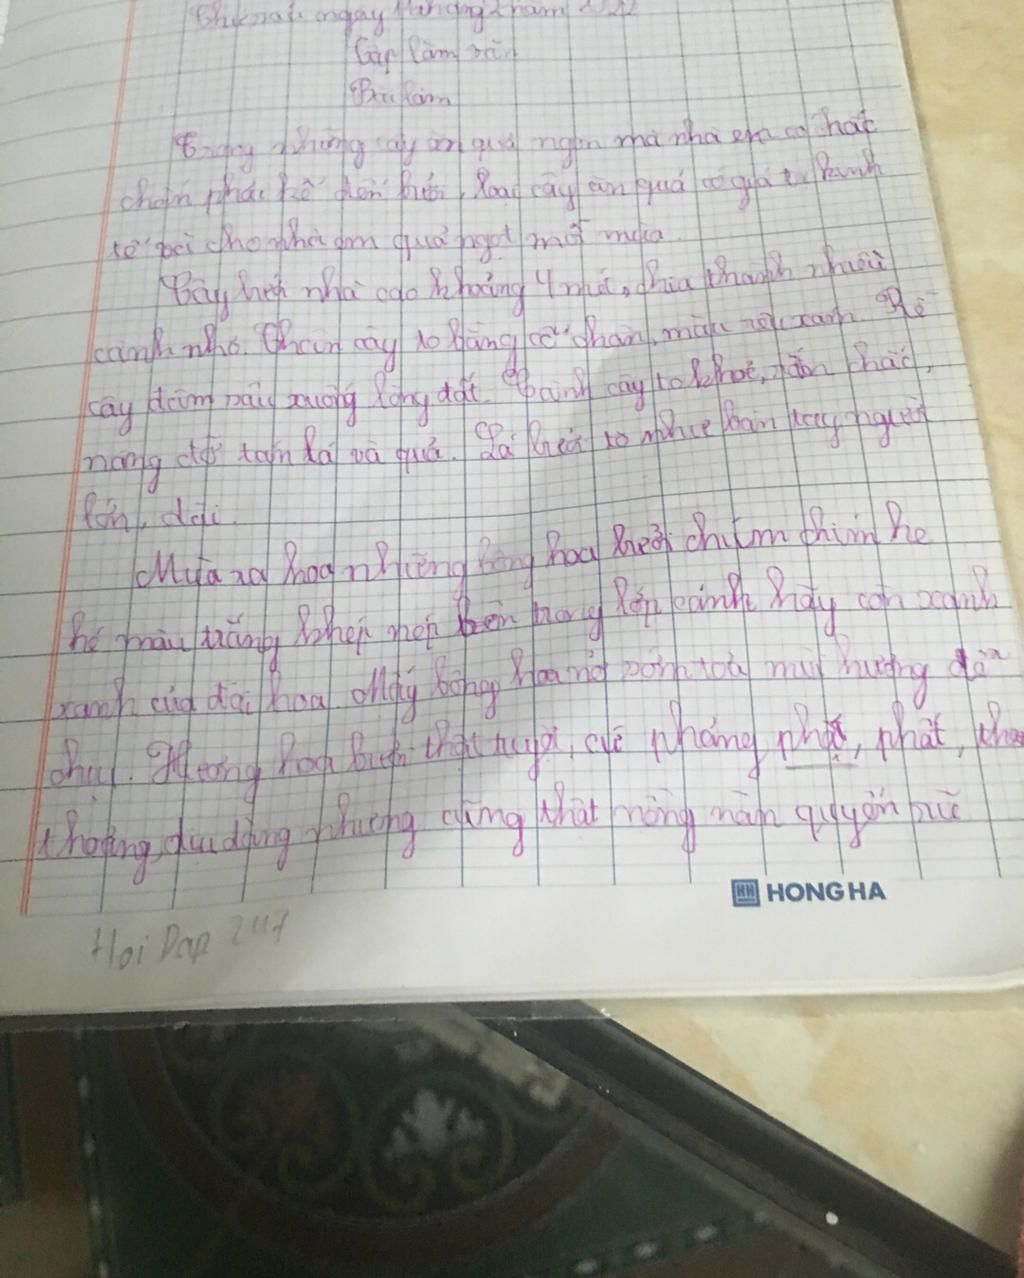 ngày tháng năm
Tập làm văn
Bài làm
Trong những cây ăn quả ngon mà nhà em có chắc
chắn phải kể đến bưởi, loại cây ăn quả có giá trị kinh
tế vì cho nhà em quả ngọt mỗi mùa.
Cây bưởi nhà cao khoảng 4 mét, chia thành nhiều
cành nhỏ. Thân cây to bằng chân, màu nâu xanh. Rễ
cây đâm sâu xuống lòng đất. Cành cây to khoẻ, chắc,
nâng đỡ tán lá và quả. Lá bưởi to như bàn tay người
lớn, dài.
Mùa ra hoa những bông hoa bưởi chúm chím he
hé màu trắng khép nép bên trong lớp cánh hãy còn xanh
xanh của đài hoa. Mấy bông hoa nở toả mùi hương
chịu. Hương hoa bưởi thật tuyệt, cứ phảng phất, phất,
thoảng, dịu dàng nhưng cũng thật nồng nàn quyến rũ
HONG HA
Hoi Dap 247